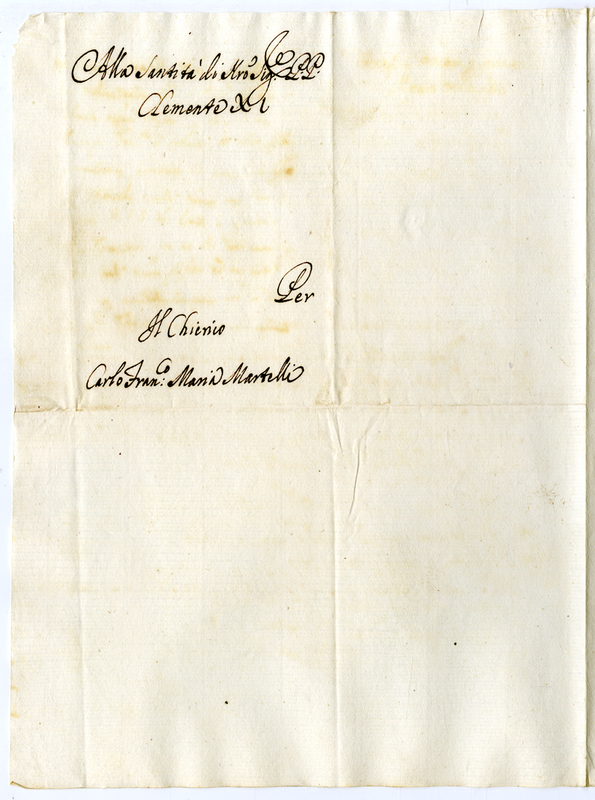 Alla Santità di Nro Sigre P.P.
Clemente XI
Per
Il Chierico
Carlo Franco: Maria Martelli